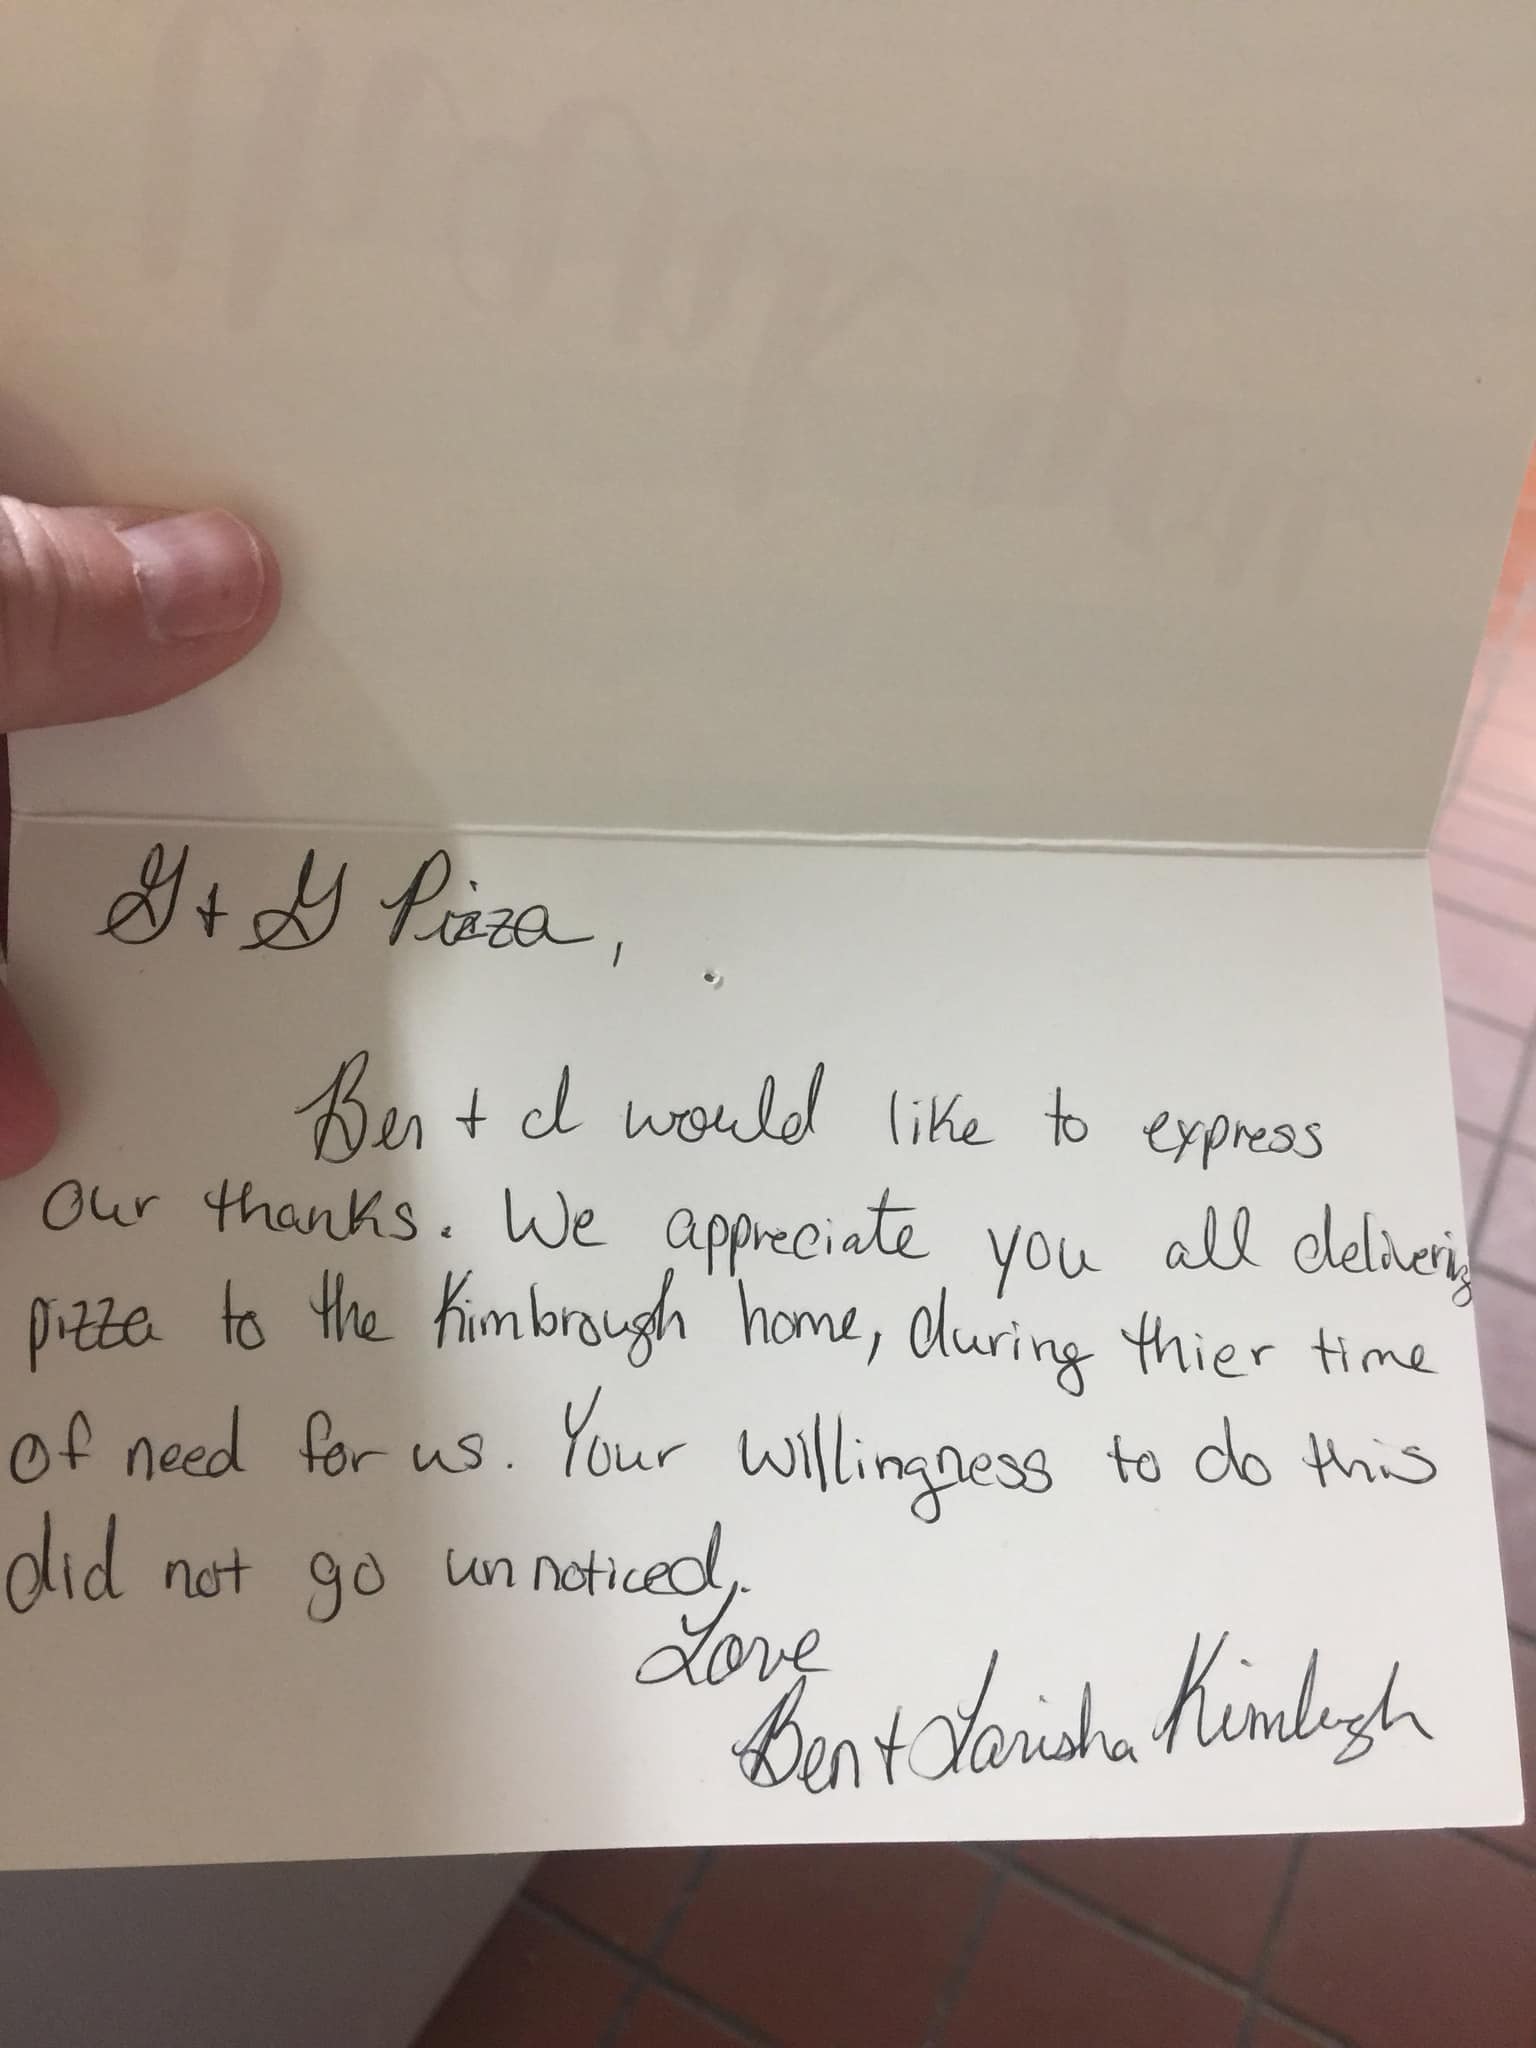 G + G Pizza,
Ben + I would like to express
our thanks. We appreciate you all delivering
pizza to the Kimbrough home, during thier time
of need for us. Your willingness to do this
did not go unnoticed.
Love
Ben + Larisha Kimbrough